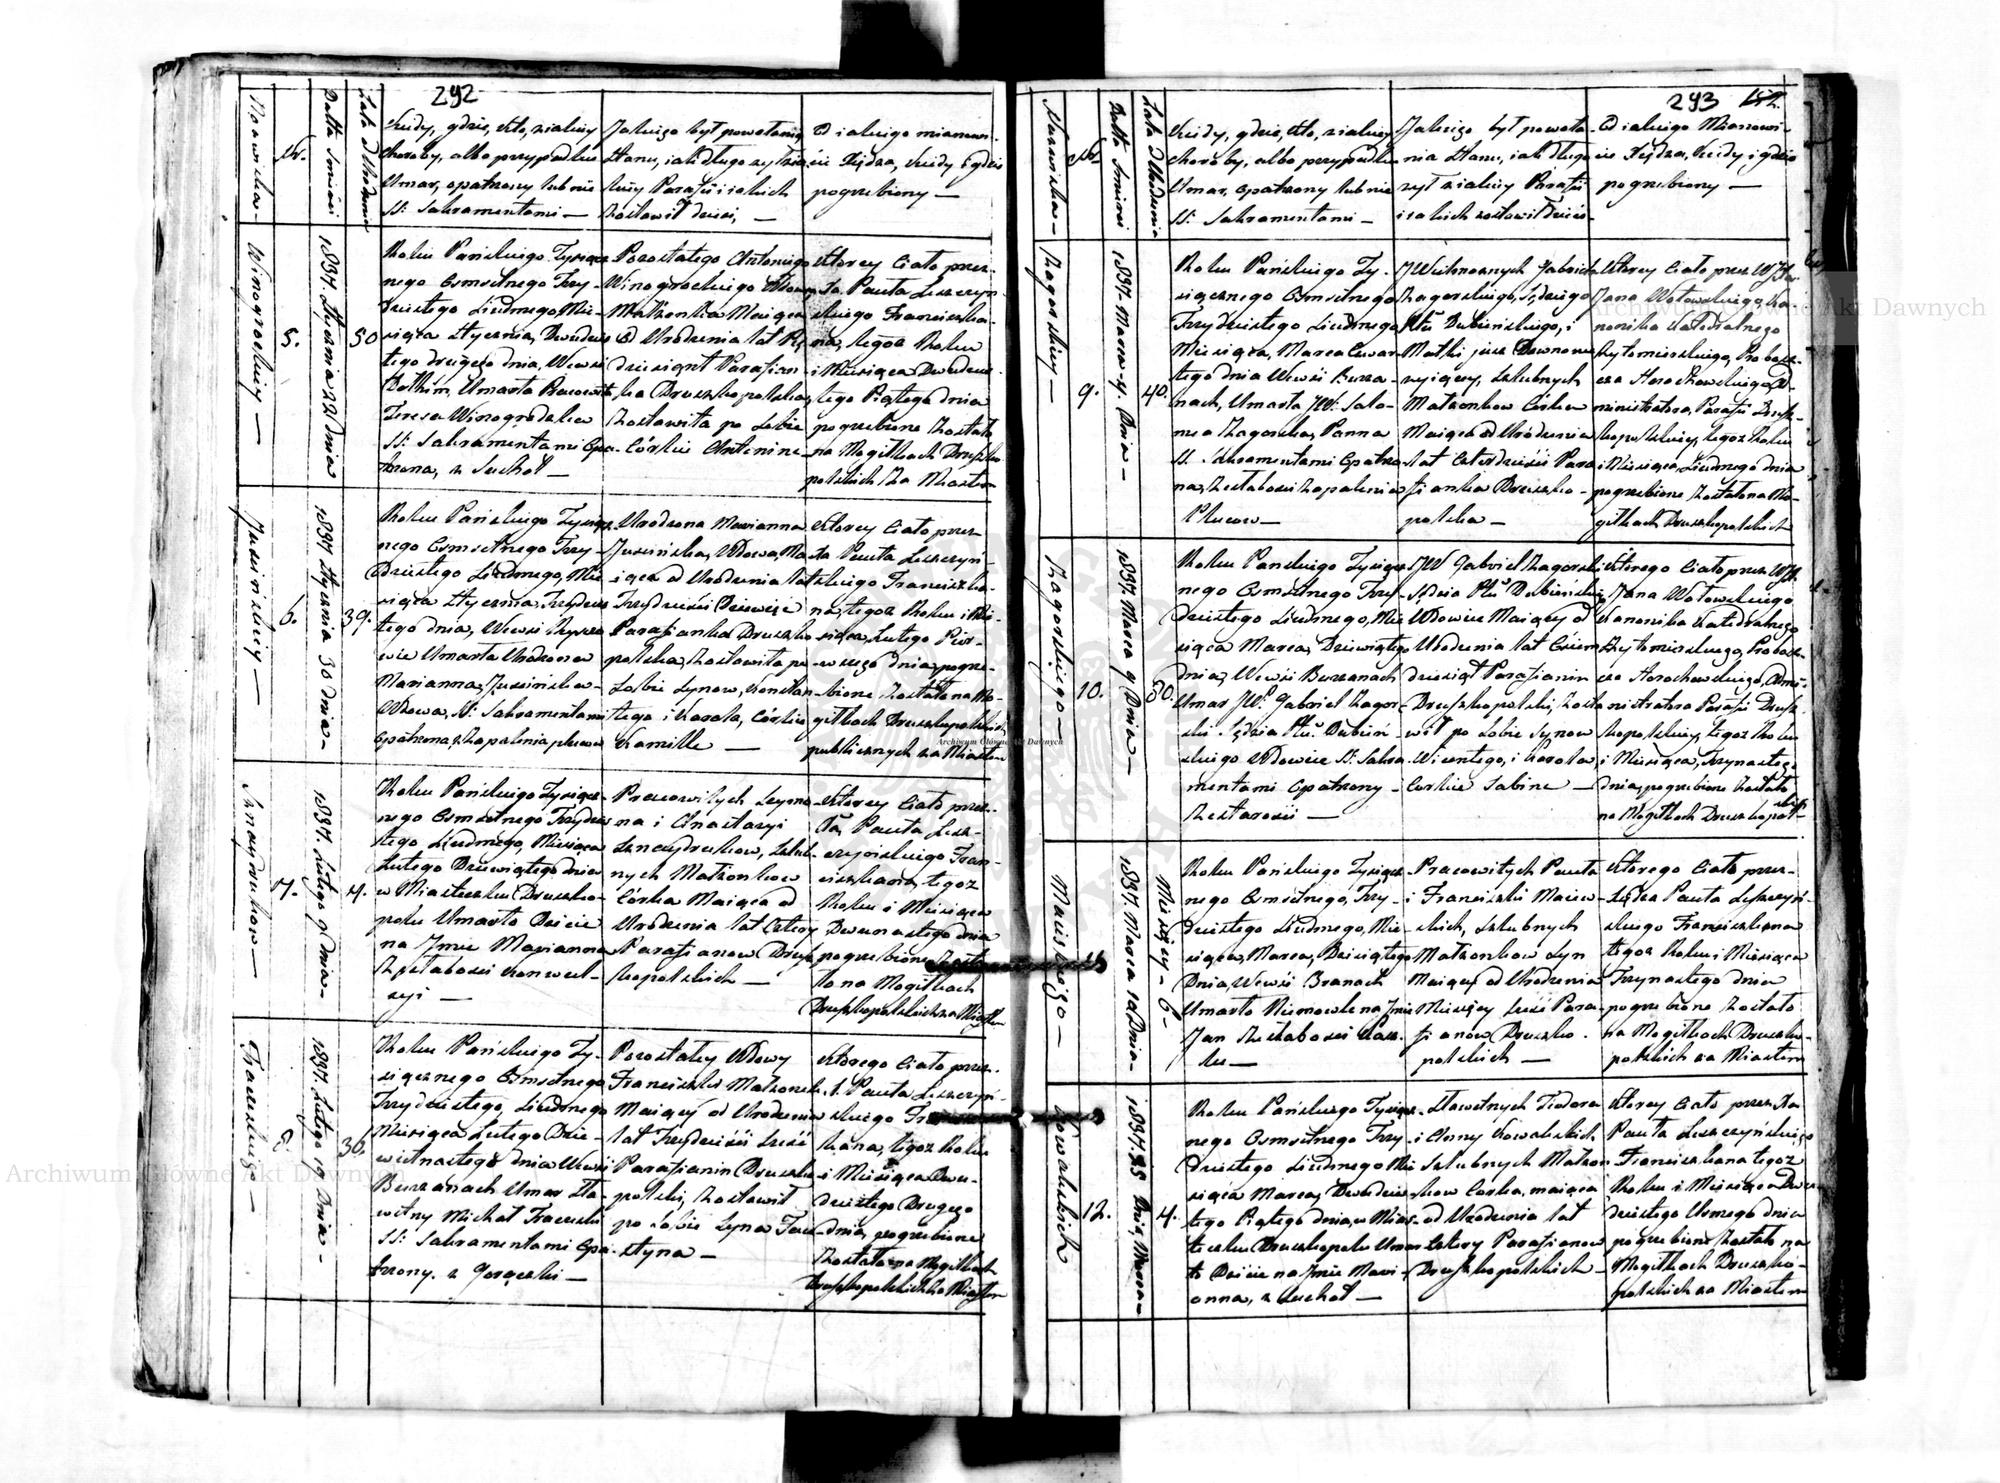 292
Nazwiska —
№.
Datta Smierci
Lata Od Urodzenia
Kiedy, gdzie, kto, z iakiey
Choroby, albo przypadku
Umar, opatrzony lub nie
SS: Sakramentami —
Jakiego był powołania
Stanu, iak długo zył, z ia-
kiey Parafii i iakich
Zostawił dzieci, —
Od iakiego mianowi-
cie Xiędza, kiedy i gdzie
pogrzebiony —
Winogrockiey —
5.
1837. Stycznia 22 dnia
50
Roku Pańskiego Tysiącz-
nego Osmsetnego Trzy-
dziestego Siudmego, Mie-
siąca Stycznia, Dwudzies-
tego drugiego dnia, We wsi
Umarła Pracowita
Teresa Winogrodzka
SS: Sakramentami Opa-
trzona, z Suchot —
Pozostałego Antoniego
Winogrockiego Wdowca
Małżonka Maiąca
Od Urodzenia lat Pięć-
dziesiąt Parafian-
ka Druszkopolska,
Zostawiła po Sobie
Córkie Antonine —
Ktorey Ciało przez
Xa. Pawła Leszczyn-
skiego Franciszka-
na, tegoż Roku
i Miesiąca Dwudzies-
tego Piątego dnia
pogrzebione Zostało
na Mogiłkach Druszko-
polskich Za Miastem
Jusinskiey —
6.
1837 Stycznia 30 dnia —
39.
Roku Pańskiego Tysiącz-
nego Osmsetnego Trzy-
Dziestego Siudmego, Mie-
siąca Stycznia, Trzydzies-
tego dnia, We wsi
Umarła Urodzona
Marianna Jusińska —
Wdowa, SS: Sakramentami
Opatrzona, z Zapalenia płucow
Urodzona Marianna
Jusińska, Wdowa, Ma-
iąca od Urodzenia lat
Trzydzieści Dziewięć
Parafianka Druszko-
polska, Zostawiła po
Sobie Synow, Konstan-
tego i Karola, Córkie
Kamille —
Ktorey Ciało przez
Xa Pawła Leszczyń-
skiego Franciszka-
na, tegoż Roku i Mie-
siąca, Lutego Pier-
wszego dnia, pogrze-
bione Zostało na Mo-
giłkach Druszkopolskich
publicznych za Miastem
7.
1837. Lutego 9 dnia —
4.
Roku Pańskiego Tysiącz-
nego Osmsetnego Trzydzies-
tego Siudmego, Miesiąca
Lutego Dziewiątego dnia
w Miasteczku Druszko-
polu Umarło Dziecie
na Jmie Marianna
Z słabosci konwul-
syi —
Pracowitych Szymo-
na i Anastazyi
Szlub-
nych Małżonkow
Córka Maiąca od
Urodzenia lat Cztery
Parafianow Drusz-
kopolskich —
Ktorey Ciało przez
Xa. Pawła Lesz-
czyńskiego Fran-
ciszkana, tegoż
Roku i Miesiąca
Dwunastego dnia
pogrzebione Zosta-
ło na Mogiłkach
Druszkopolskich za Miastem
8.
1837. Lutego 19 Dnia —
36.
Roku Pańskiego Ty-
siącznego Osmsetnego
Trzydziestego, Siudmego
Miesiąca Lutego Dzie-
wietnastego dnia We wsi
Burzanach Umar Sła-
wetny Michał
SS: Sakramentami Opa-
trzony. z Gorączki —
Pozostałey Wdowy
Franciszki Małżonek
Maiący od Urodzenia
lat Trzydzieści Sześć
Parafianin Druszko-
polski, Zostawił
po Sobie Syna Jus-
styna —
Ktorego Ciało przez
X. Pawła Leszczyń-
skiego Francisz-
kana, tegoż Roku
i Miesiąca Dwu-
dziestego Drugiego
dnia, pogrzebione
Zostało na Mogiłkach
Druszkopolskich za Miastem
293
Nazwiska —
№
Datta Smierci
Lata Od Urodzenia
Kiedy, gdzie, kto, z iakiey
choroby, albo przypadku
Umar, opatrzony lub nie
SS: Sakramentami —
Jakiego był powoła-
nia Stanu, iak długo
zył z iakiey Parafii
i iakich zostawił dzieci —
Od iakiego Mianowi-
cie Xiędza, kiedy i gdzie
pogrzebiony —
Zagorskiey —
9.
1837. Marca 4. Dnia —
40.
Roku Pańskiego Ty-
siącznego Osmsetnego
Trzydziestego Siudmego
Miesiąca, Marca Czwar-
tego dnia We wsi Burza-
nach, Umarła JW: Salo-
mea Zagorska, Panna
SS. Sakramentami Opatrzo-
na, Ze słabosci Zapalenia
Płucow —
JWielmoznych Gabriela
Zagorskiego, Sędziego
Ptu Dubińskiego, i
Matki iuz Dawno nie
zyiącey, Szlubnych
Małżonkow Córka
Maiąca od Urodzenia
lat Czterdzieści Para-
fianka Druszko-
polska —
Ktorey Ciało przez WJX
Jana Wołowskiego, Ka-
nonika Katedralnego
Zytomirskiego, Probosz-
cza Horochowskiego, Ad-
ministratora, Parafii Drusz-
kopolskiey, tegoż Roku
i Miesiąca, Siudmego dnia
pogrzebione Zostało na Mo-
giłkach Druszkopolskich
Zagorskiego —
10.
1837. Marca 9 Dnia —
80.
Roku Panskiego Tysiącz-
nego Osmsetnego Trzy-
dziestego Siudmego, Mie-
siąca Marca, Dziewiątego
dnia, We wsi Burzanach
Umar JW: Gabriel Zagor-
ski Sędzia Ptu. Dubień-
skiego Wdowiec SS: Sakra-
mentami Opatrzony —
Ze starosci —
JW Gabriel Zagorski
Sędzia Ptu Dubieński
Wdowiec Maiący od
Urodzenia lat Ośiem-
dziesiąt Parafianin
Druszkopolski, Zosta-
wił po Sobie Synow
Wicentego, i Karola,
Corkie Sabine —
Ktorego Ciało przez WJX.
Jana Wołowskiego
Kanonika Katedralnego
Zytomirskiego, Probosz-
cza Horochowskiego, Admi-
nistratora Parafii Drusz-
kopolskiey, tegoż Roku
i Miesiąca, Trzynastego
dnia, pogrzebione Zostało
na Mogiłkach Druszkopol-
skich
11
1837. Marca 10 Dnia —
Miesięcy — 6 —
Roku Pańskiego Tysiącz-
nego Osmsetnego, Trzy-
dziestego Siudmego, Mie-
siąca, Marca, Dziesiątego
Dnia, We wsi Branach
Umarło Niemowle na Jmie
Jan Ze słabosci Kasz-
lu —
Pracowitych Pawła
i Franciszki Maiew-
skich, Szlubnych
Małżonkow Syn
Maiący od Urodzenia
Miesięcy Sześć Para-
fianow Druszko-
polskich —
Ktorego Ciało przez
Xiędza Pawła Leszczyń-
skiego Franciszkana
tegoż Roku i Miesiąca
Trzynastego dnia
pogrzebione Zostało
na Mogiłkach Druszko-
polskich za Miastem
Kowalskich
12.
1837. 25 Dnia, Marca —
4.
Roku Pańskiego Tysiącz-
nego Osmsetnego Trzy-
dziestego Siudmego Mie-
siąca Marca, Dwudzies-
tego Piątego dnia, w Mias-
teczku Druszkopolu Umar-
ło Dziecie na Jmie Mari-
anna, z Suchot —
Sławetnych Fiodora
i Anny Kowalskich
Szlubnych Małżon-
kow Córka, maiąca
od Urodzenia lat
Cztery Parafianow
Druszkopolskich —
Ktorey Ciało przez Xa
Pawła Leszczyńskiego
Franciszkana tegoż
Roku i Miesiąca Dwu-
dziestego Usmego dnia
pogrzebione Zostało na
Mogiłkach Druszko-
polskich za Miastem
Archiwum Główne Akt Dawnych
Archiwum Główne Akt Dawnych
Archiwum Główne Akt Dawnych